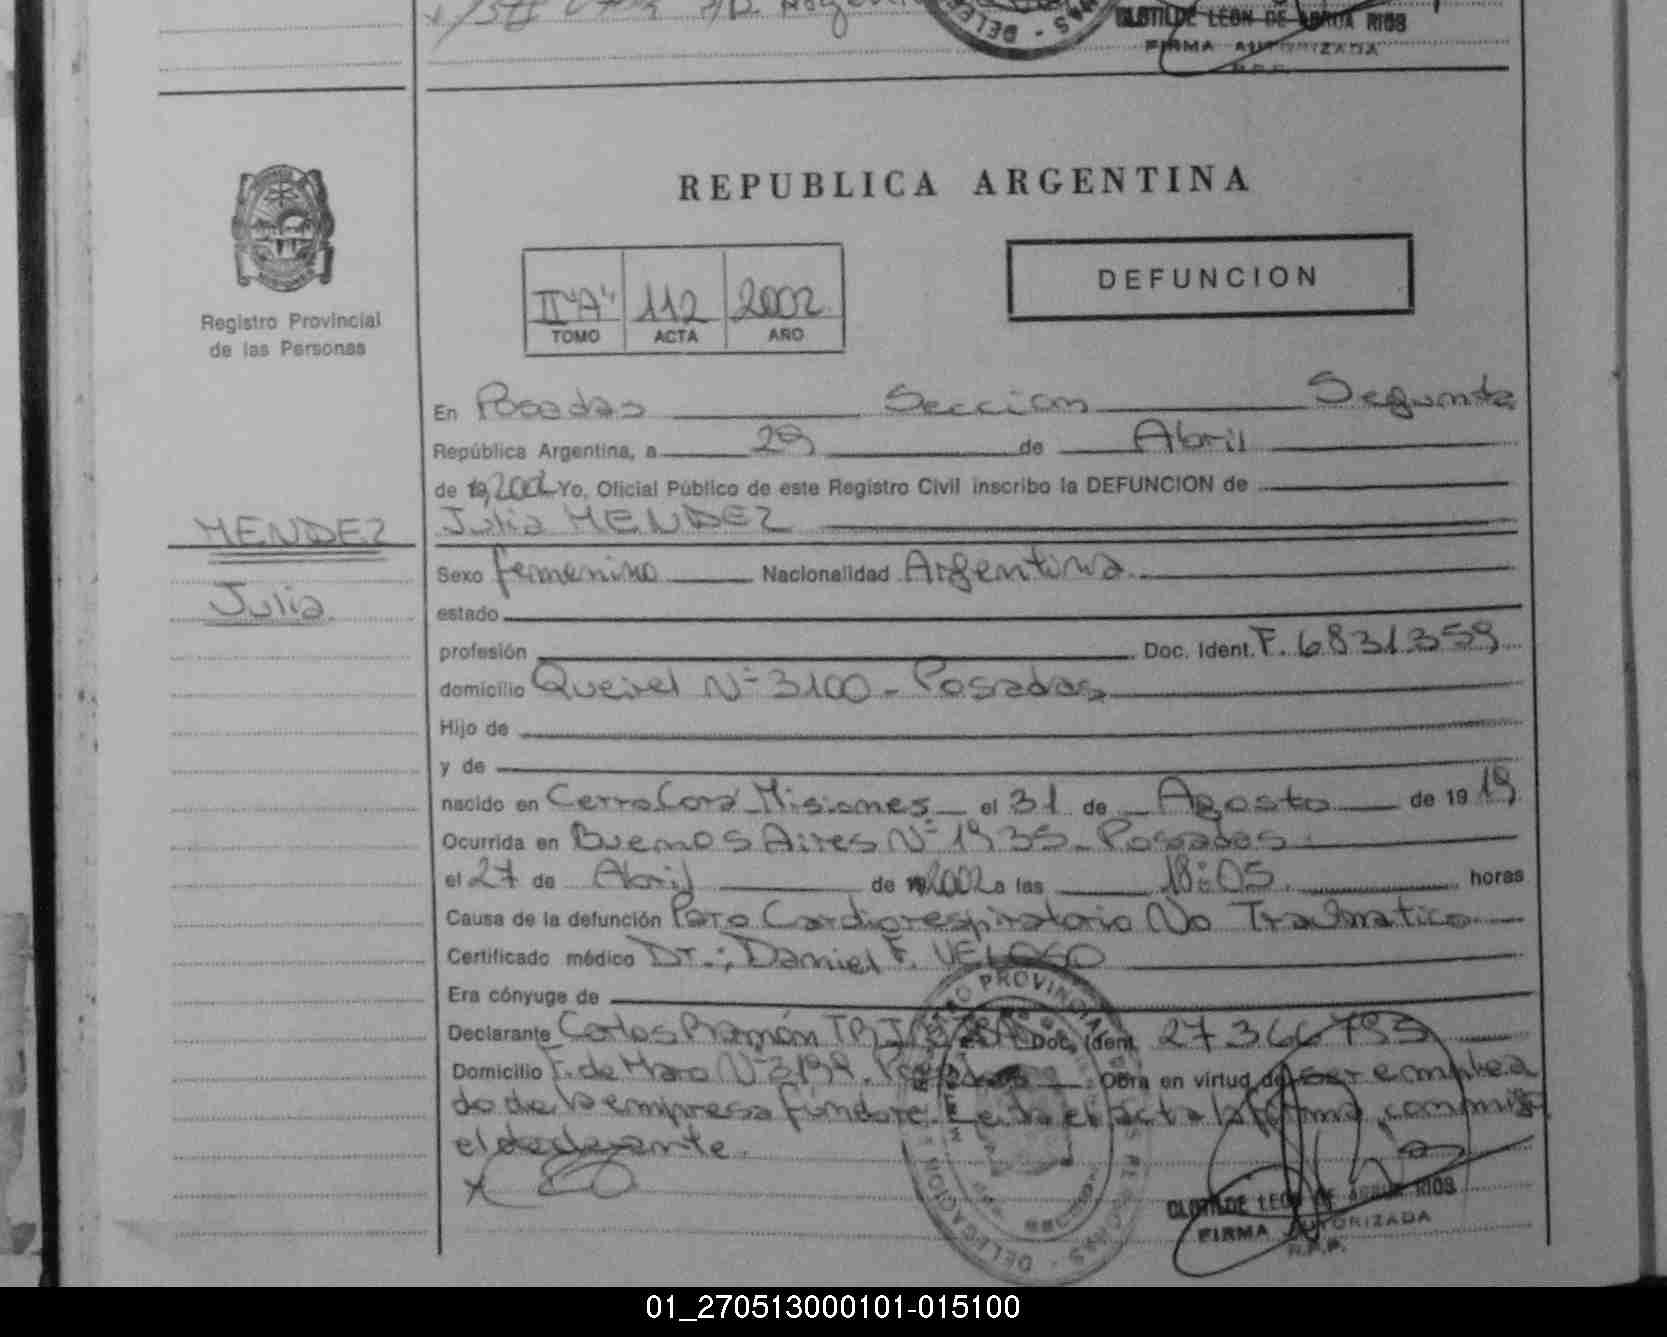 CLOTILDE LEON DE ARRUA RIOS
FIRMA AUTORIZADA
R.P.P.
REPUBLICA ARGENTINA
Registro Provincial
de las Personas
II "A" 112 2002
TOMO ACTA AÑO
DEFUNCION
En Posadas Seccion Segunda
República Argentina, a 29 de Abril
de 19 2002 Yo, Oficial Público de este Registro Civil inscribo la DEFUNCION de
MENDEZ
Julia
Julia MENDEZ
Sexo femenino Nacionalidad Argentina
estado
profesión Doc. Ident. F. 6831359
domicilio Queirel Nº 3100 - Posadas
Hijo de
y de
nacido en Cerro Corá Misiones el 31 de Agosto de 19 19
Ocurrida en Buenos Aires Nº 1935 - Posadas
el 27 de Abril de 19 2002 a las 18:05 horas
Causa de la defunción Paro Cardiorespiratorio No Traumatico
Certificado médico Dr.: Daniel F. VELOSO
Era cónyuge de
Declarante Carlos Ramón Doc. Ident. 27366793
Domicilio F. de Haro Nº Posadas Obra en virtud de ser emplea
do de la empresa funebre. Leida el acta la firma conmigo
el declarante.
CLOTILDE LEON DE ARRUA RIOS
FIRMA AUTORIZADA
R.P.P.
01_270513000101-015100